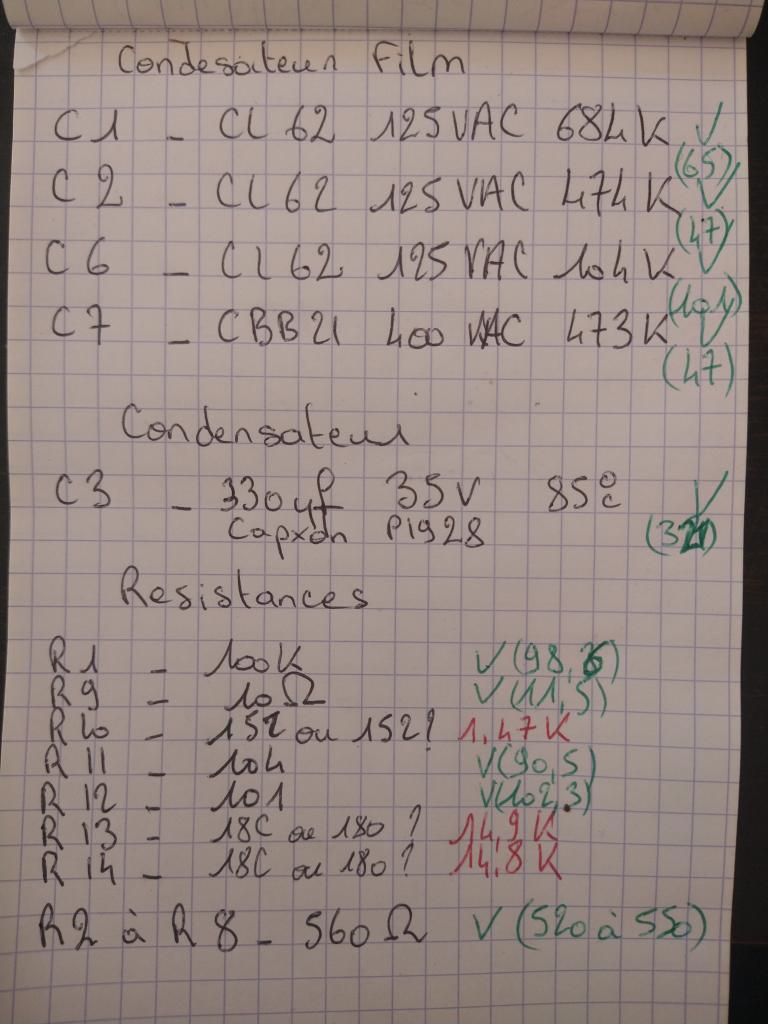 Condesateur Film
C1 - CL 62 125 VAC 684K ✓
(65)
C2 - CL 62 125 VAC 474K ✓
(47)
C6 - CL 62 125 VAC 104K ✓
(101)
C7 - CBB21 400 VAC 473K ✓
(47)
Condensateur
C3 - 330uf 35V 85°c ✓
Capxon P1928
Resistances
R1 - 100K ✓(98,6)
R9 - 10Ω ✓(11,5)
R10 - 151 ou 152? 1,47K
R11 - 104 ✓(90,5)
R12 - 101 ✓(102,3)
R13 - 18C ou 180 ? 14,9K
R14 - 18C ou 180? 14,8K
R2 à R8 - 560Ω ✓(520 à 550)